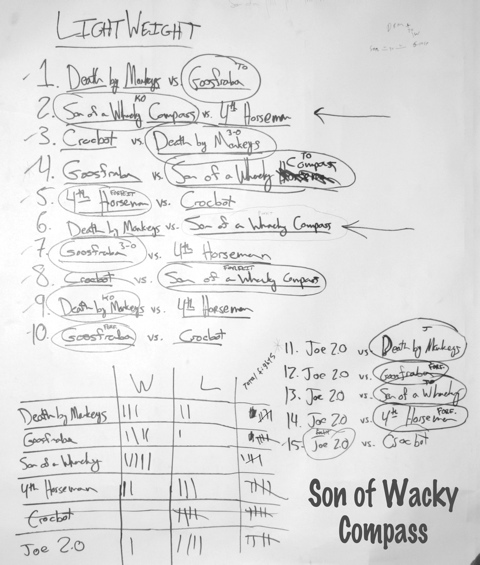 LIGHTWEIGHT
1. Death by Monkeys vs Goosfraba TO
2. Son of a Whacky Compass KO vs. 4th Horseman
3. Crocbot vs. Death by Monkeys 3-0
4. Goosfraba vs. Son of a Whacky Compass TO
5. 4th Horseman FORFEIT vs. Crocbot
6. Death by Monkeys vs. Son of a Whacky Compass
7. Goosfraba 3-0 vs. 4th Horsemann
8. Crocbot vs. Son of a Whacky Compass FORFEIT
9. Death by Monkeys KO vs. 4th Horseman
10. Goosfraba FORF. vs. Crocbot
11. Joe 2.0 vs. Death by Monkeys J
12. Joe 2.0 vs. Goosfraba FORF.
13. Joe 2.0 vs. Son of a Whacky
14. Joe 2.0 vs. 4th Horseman FORF.
15. Joe 2.0 vs. Crocbot
W L Total fights
Death by Monkeys
Goosfraba
Son of a Whacky
4th Horseman
Crocbot
Joe 2.0
Son of Wacky
Compass